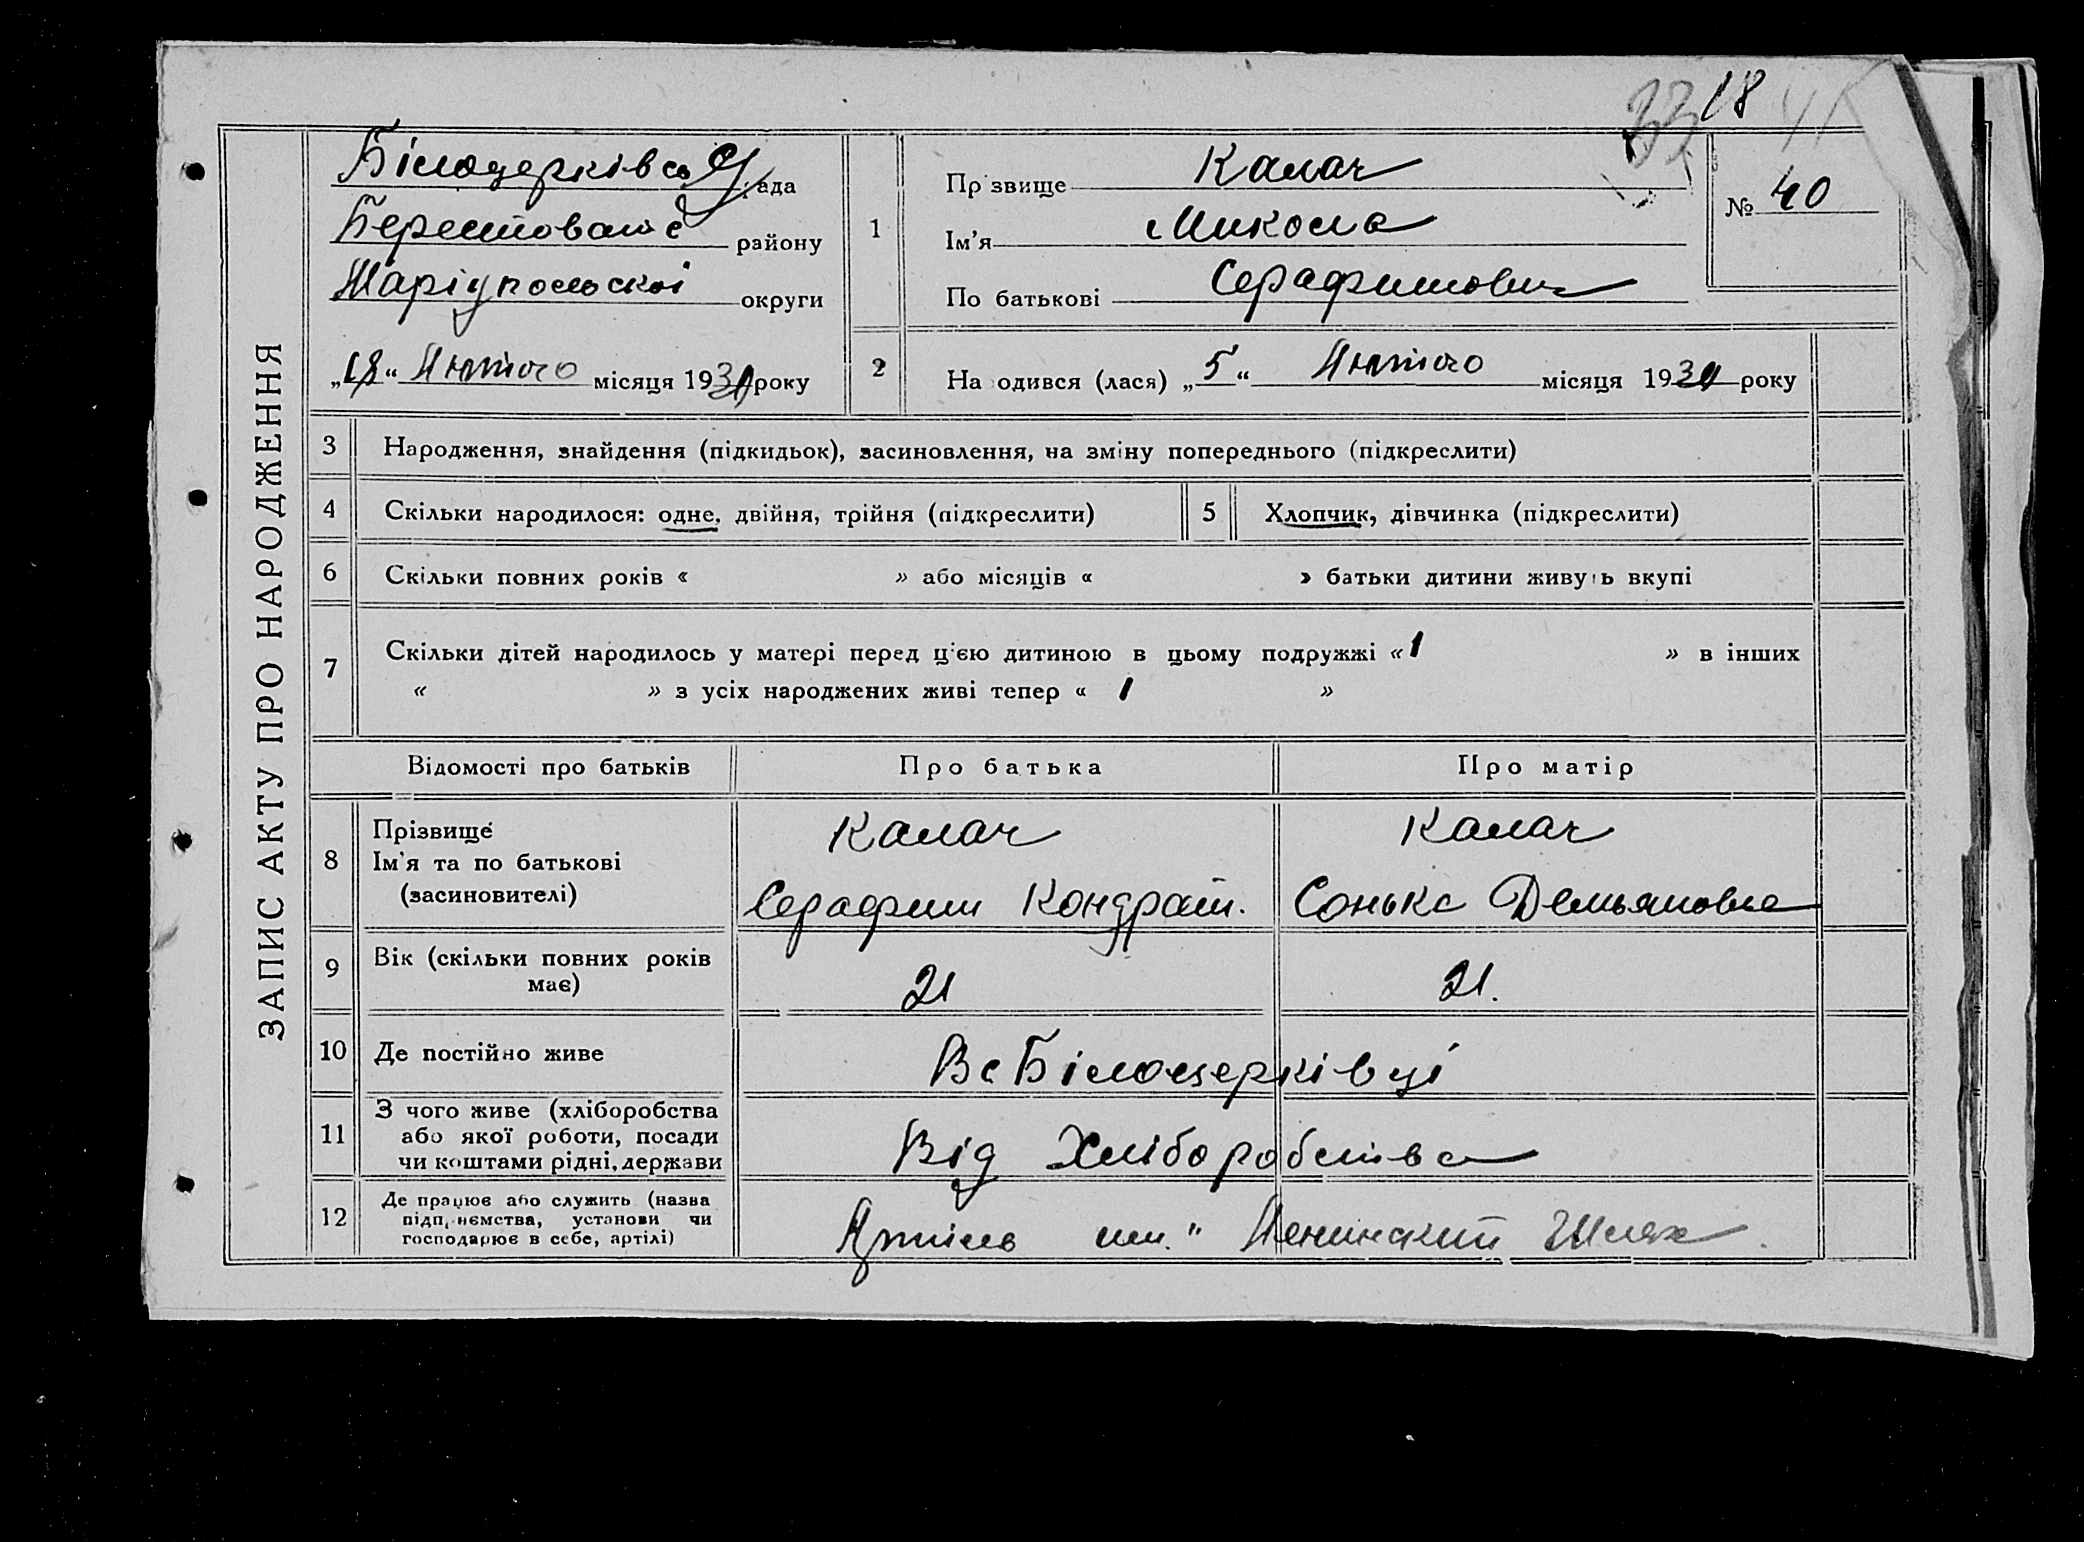 33 18 41
ЗАПИС АКТУ ПРО НАРОДЖЕННЯ
Білоцерківсь рада
району
Маріупольскої округи
„18“ Лютого місяця 1930 року
1
Прізвище Калач
Ім'я Микола
По батькові Серафимович
№ 40
2
На одився (лася) „5“ Лютого місяця 1930 року
3 Народження, знайдення (підкидьок), засиновлення, на зміну попереднього (підкреслити)
4 Скільки народилося: одне, двійня, трійня (підкреслити) 5 Хлопчик, дівчинка (підкреслити)
6 Скільки повних років « » або місяців « » батьки дитини живуть вкупі
7 Скільки дітей народилось у матері перед цією дитиною в цьому подружжі «1 » в інших
« » з усіх народжених живі тепер « 1 »
Відомості про батьків Про батька Про матір
8 Прізвище
Ім'я та по батькові
(засиновителі)
Калач
Серафим Кондрат.
Калач
Сонька Демьяновна
9 Вік (скільки повних років
має)
21 21.
10 Де постійно живе Вс Білоцерківці
11 З чого живе (хліборобства
або якої роботи, посади
чи коштами рідні, держави
Від Хліборобства
12 Де працює або служить (назва
підприємства, установи чи
господарює в себе, артілі)
Артіль им. " Ленинский Шлях.